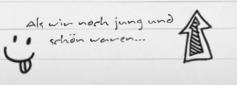 Als wir noch jung und
schön waren...